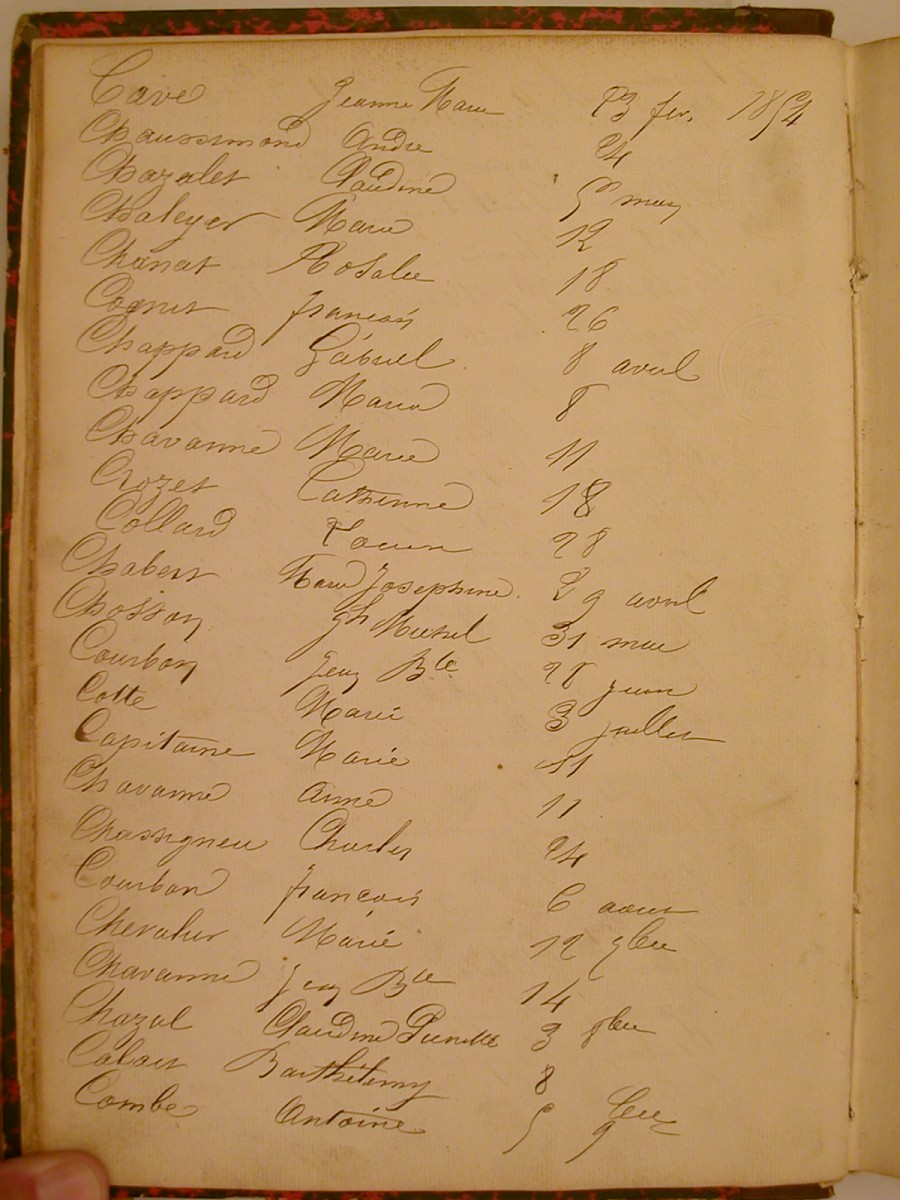 Cave Jeanne Marie 23 fev. 1854
Chaussimond André 24
Chazalet Claudine 5 mars
Chaleyer Marie 12
Chanat Rosalie 18
Cognet françois 26
Chappard Gabriel 8 avril
Chappard Maria 8
Chavanne Marie 11
Crozet Catherine 18
Collard 28
Chabert Marie Josephine 29 avril
Chosson Michel 31 mai
Courbon Jean Bte 28 juin
Cotte Marie 3 juillet
Capitaine Marie 11
Chavanne Anne 11
Chassigneu Charles 24
Courbon françois 6 aout
Chevalier Marie 12 7bre
Chavanne Jean Bte 14
Chazal Claudine Pierrette 3 8bre
Barthélemy 8
Combe Antoine 5 9bre